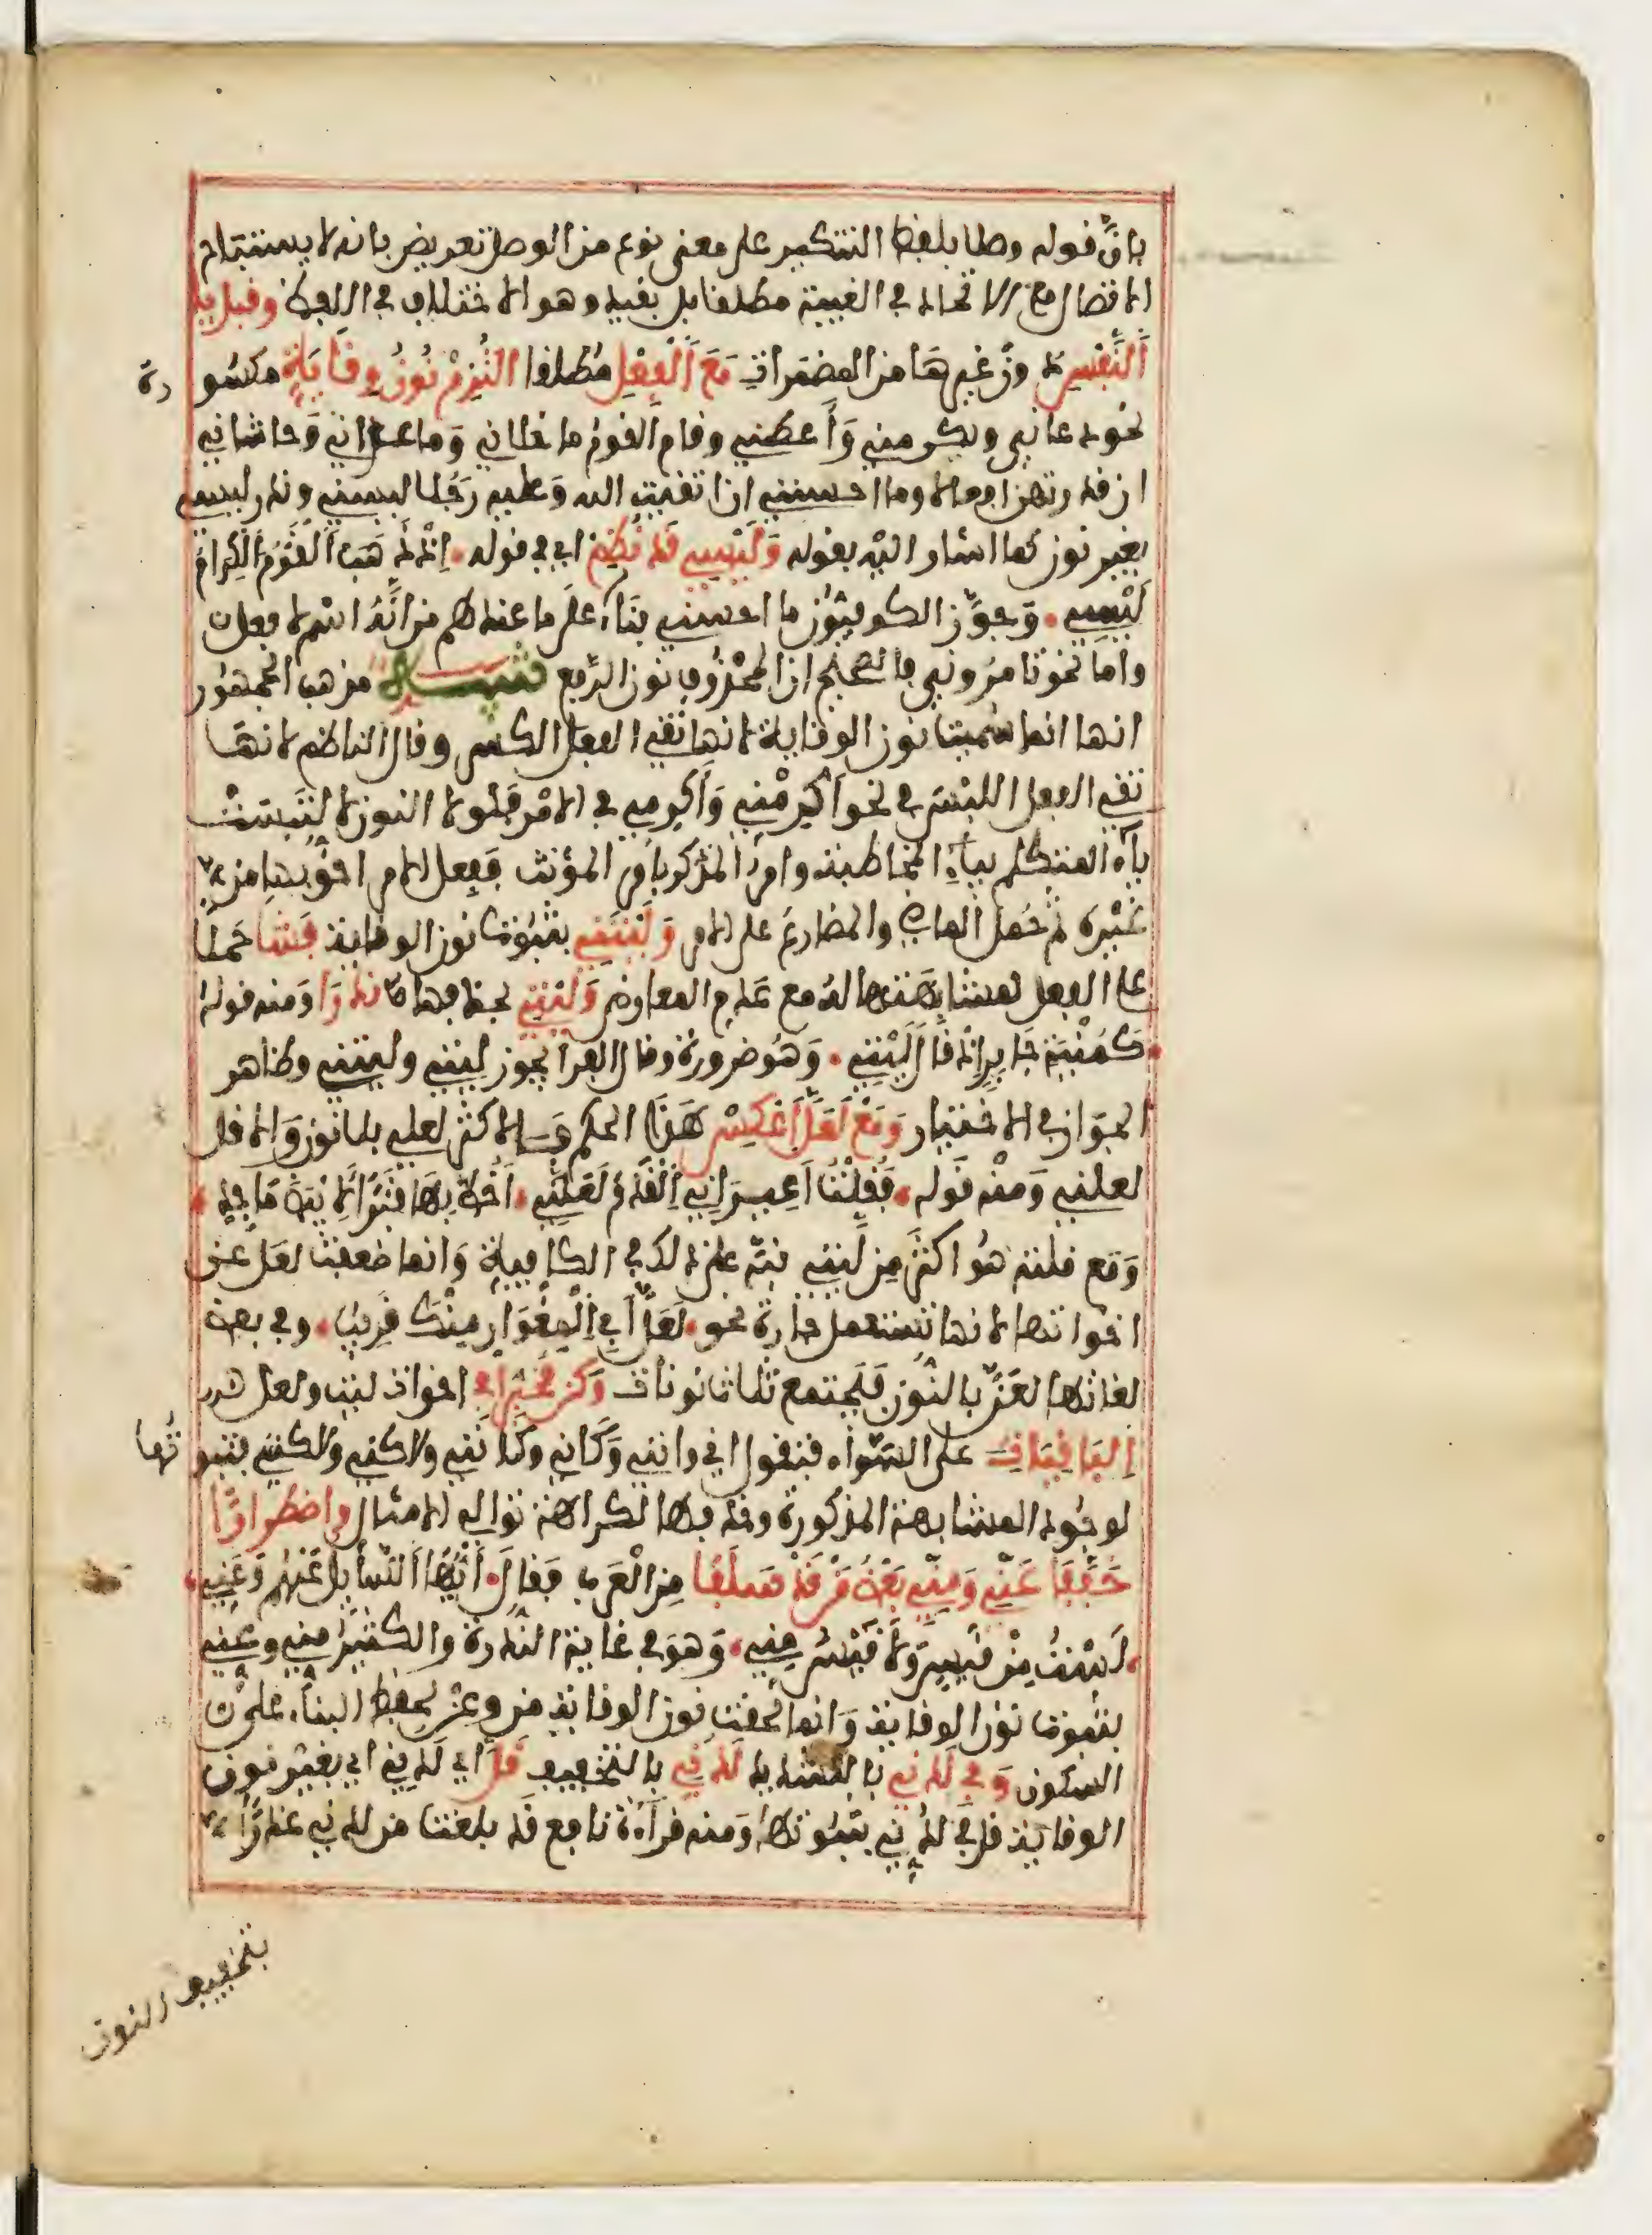 بانّ قوله وصلا بلفظ التنكير على معنى نوع من الوصل تعريض بانه لا يستباح
الاتصال مع الاتحاد في الغيبة مطلقا بل بقيد وهو الاختلاف في اللفظ وقبل يا
اَلنَّفْسِ دون غيرهَا من المضمرات مَعَ اَلْفِعْلِ مُطلقا اُلْتُزِمْ نُونُ وِقَايَةٍ مكسو
رة
نحو دعاني ويكرمني وَأَعطني وقام القوم ما خلاني وَما عداني وَحاشاني
ان قدرتهن افعالا وما احسنني ان اتقيت الله وَعليه رَجُلا ليسني وندر ليسي
بغير نون كما اشار اليْه بقوله وَلَيْسِي قَدْ نُظِمْ اي في قوله • اِذْ ذَهَبَ اَلْقَوْمُ اَلْكِرَامُ
لَيْسِي • وَجوَّز الكوفيّون ما احسني بنَاءً علَى ما عندهم من اَنَّهُ اسْم لا فعل
واما نحو تامرُونِي فالصّحيح ان المحْذُوف نون الرّفع تنبيه مذهب الجمهُور
انها انما سُميت نون الوقاية لانها تقي الفعل الكسر وقال الناظم لانهَا
تقي الفعل اللبْس في نحو أَكْرِمْنِي وَأَكْرِمِي في الامْر فَلَولا النون لالْتَبَسَتْ
يآء المتكلم بيآءِ المخاطبة وامرُ المذكر بأمْر المؤنث فَفعل الامر احَقّ بهَا من
غيْره ثم حُمل الماضي والمضارع على الامر وَلَيْتَنِي بثبُوت نون الوقاية فَشَا حَملًا
على الفعل لمشابهَتها له مع عَدم المعارض وَلَيْتِي بحذفها نَدَرَا وَمنه قوله
• كَمُنْيَةِ جَابِرٍ اِذْ قَالَ لَيْتِي • وَهُو ضرورة وقال الفرا يجوز لَيْتَنِي وليتي وظاهر
الجوَاز في الاختيار وَمَعْ لَعَلَّ اَعْكِسْ هَذَا الحكم فَالاكثر لعلي بلا نون وَالاقل
لعلني وَمنْه قوله • فَقُلْتُ اَعِيرَانِي اِلْقَدُومَ لَعَلَّنِي • اَخُطُّ بِهَا قَبْرًا لِأَبْيَضَ مَاجِدِ •
وَمَع قلته هُو اكثَر مِن لَيْتِي نبّه على ذلك في الكافية وَانما ضعفت لعلّ عن
اخواتها لانها تستعمل جارة نحو • لَعَلَّ أَبِي اِلْمِغْوَارِ مِنْكَ قَرِيبُ • وفي بعض
لغاتها لعَنَّ بالنّون فَيجتمع ثلاث نونات وَكُن مُخَيَّرًا في اخوات ليت ولعل
اِلْبَاقِيَاتِ علَى السّواء فتقول اني وانني وَكَأَنِّي وكأنني ولاكني ولاكنني فثبو
تُها
لوجُود المشابهة المذكورة وحذفها لكراهة توالي الامثال واِضْطِرَارًا
خَفَّفَا عَنِّي وَمِنِّي بَعْضُ مَنْ قَدْ سَلَفَا مِن الْعَرب فَقالَ • اَيُّهَا اَلسَّائِلُ عَنْهُم وَعَنِي •
• لَسْتُ مِنْ قَيْسَ وَلَا قَيْسُ مِنِي • وَهو في غاية النّدرة والكثيرُ مِنِّي وعَنّي
بثبُوت نون الوقاية وَانما لحقت نون الوقاية من وعن لحفظ البنآء على
السكون وَفِي لَدُنِّي بالتشديد لَدُنِي بالتخفيف قَلَّ اي لَدُنِي اي بغيْر نون
الوقاية قل في لدُنّي بثبُوتها وَمنه قرآءة نافع قد بلغت من لدني عذرًا
بتخفيف النون